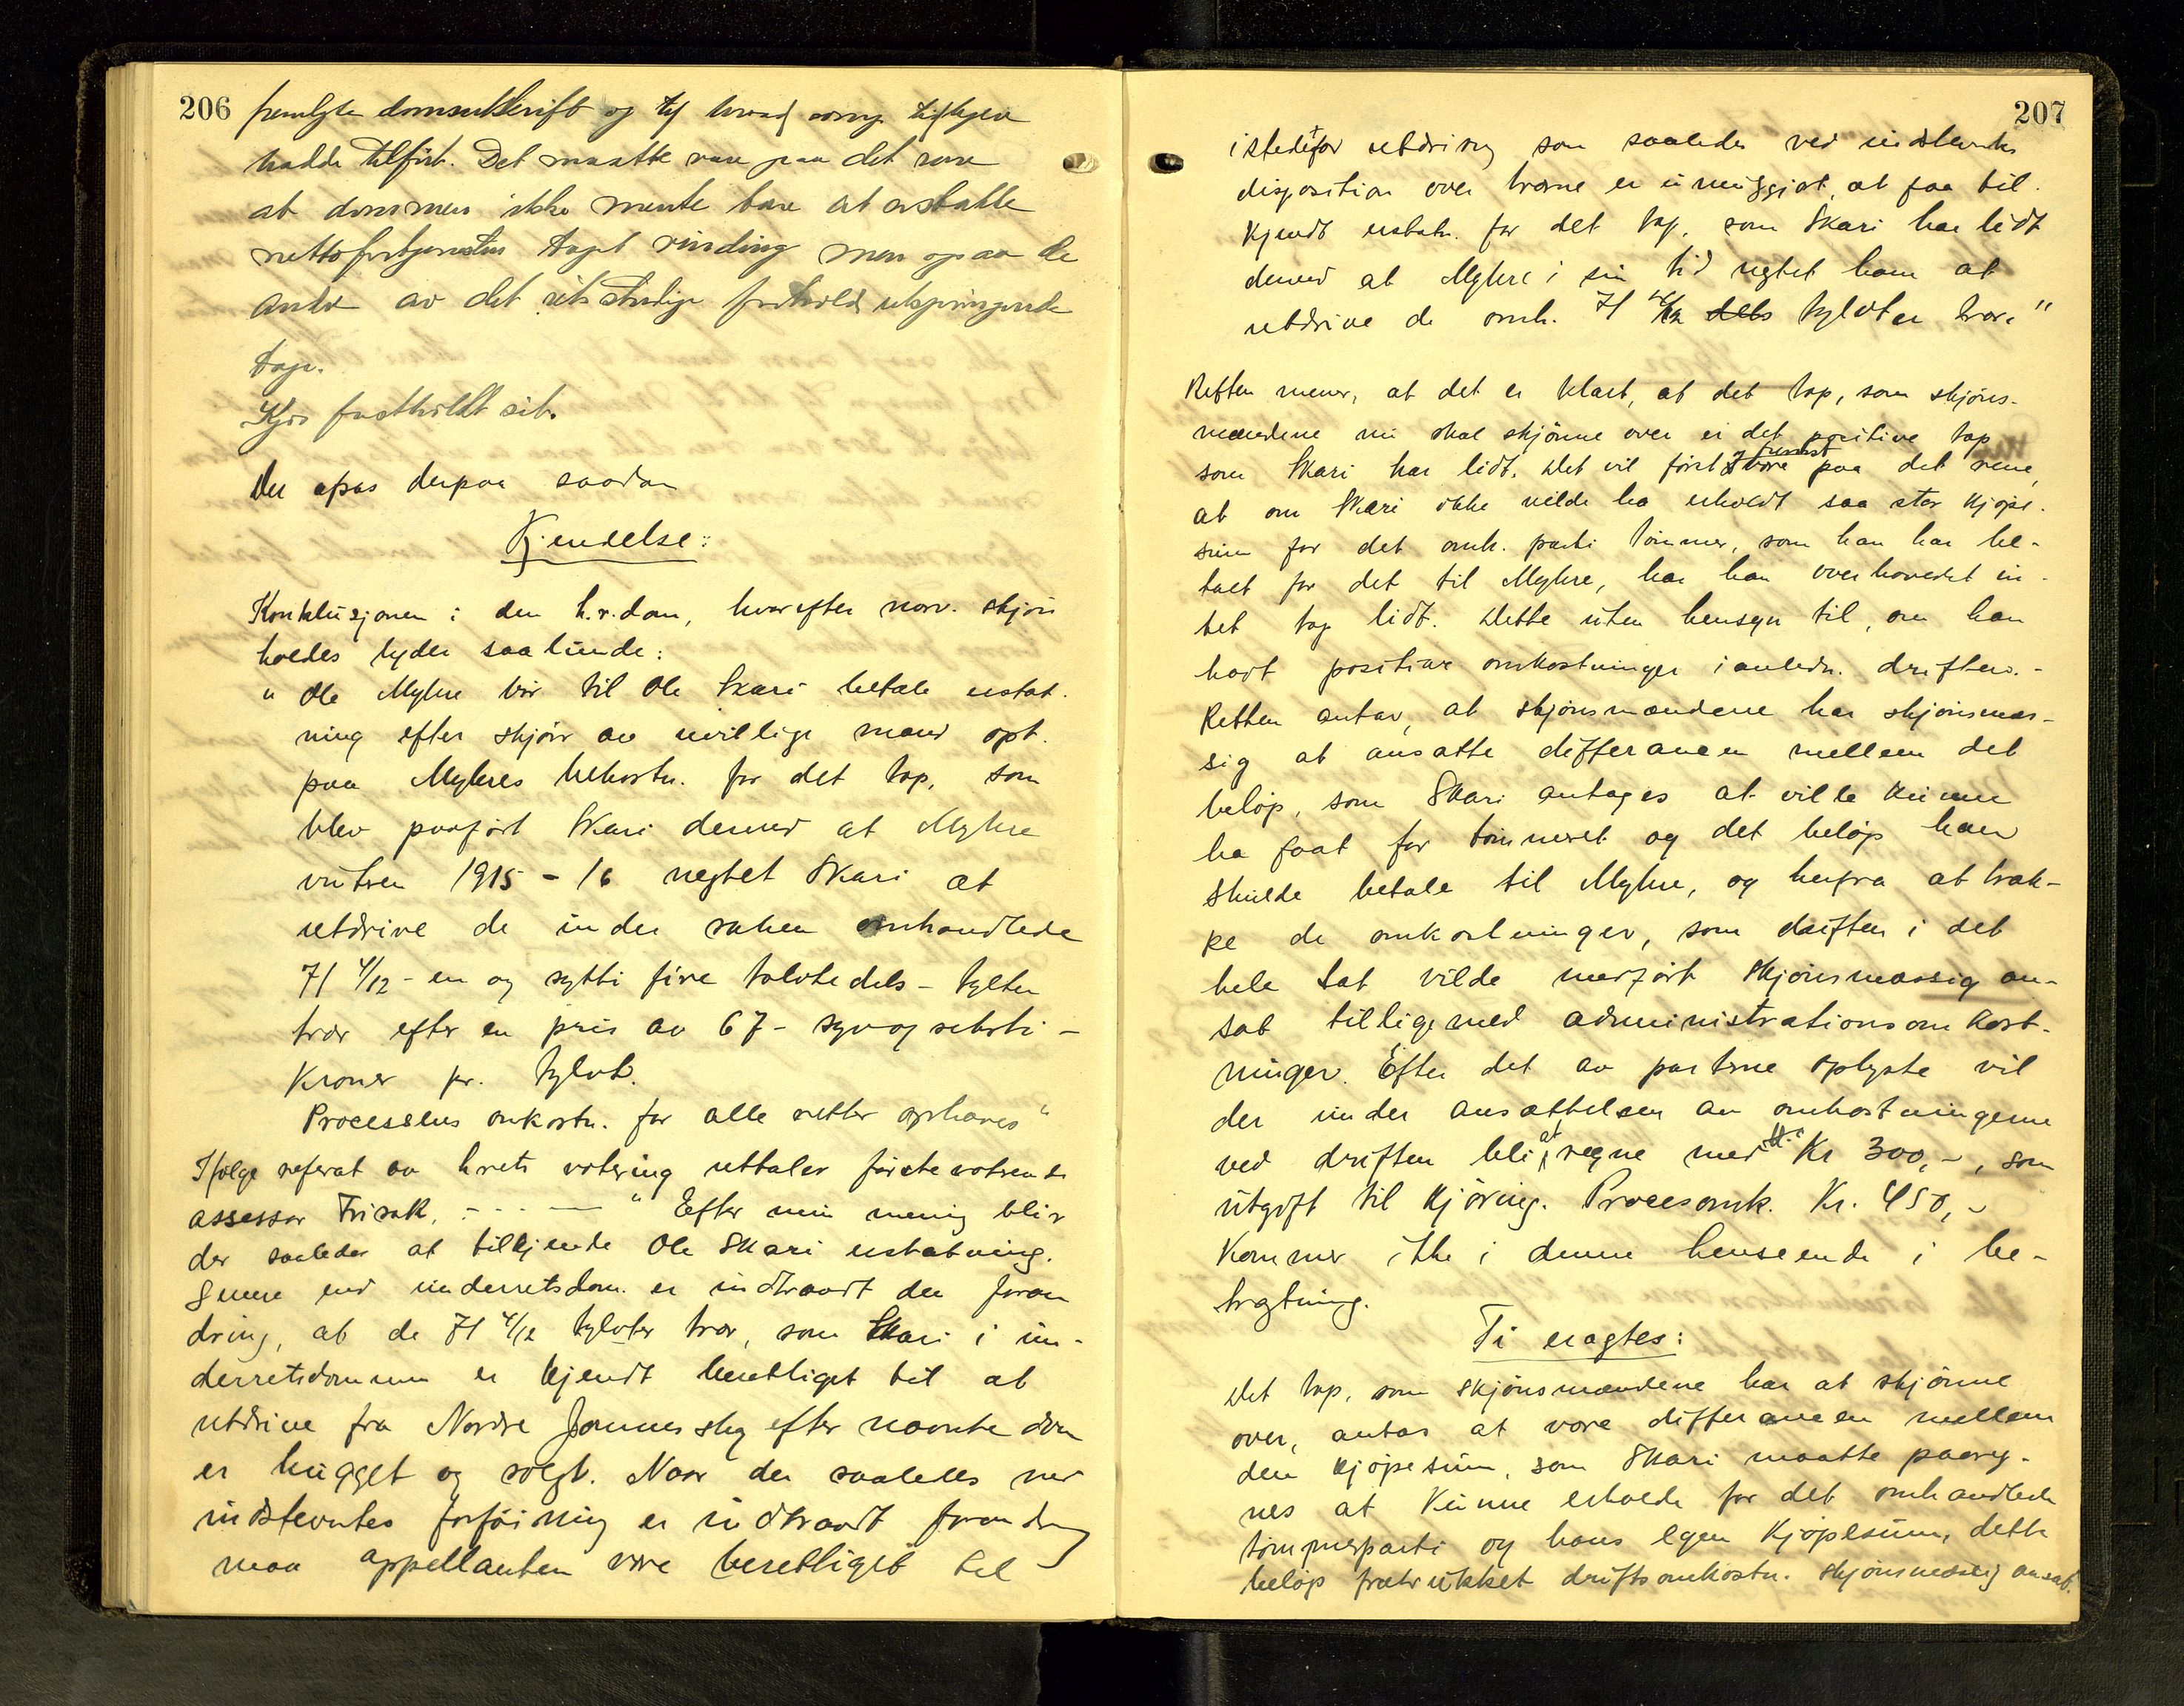 206
fremlagte domsutskrift og til hvad
hadde tilført. Det maatte være paa det rene
at dommen ikke mente bare at erstatte
nettofortjenesten tapt vinding men ogsaa de
av det retsstridige forhold utspringende
tap.
fastholdt sit.
Der afsas derpaa saadan
Kjendelse:
Konklusjonen i den h.r.dom, hvorefter nærv. skjön
holdes lyder saalunde:
" Ole Myhre bör til Ole Skari betale erstat-
ning efter skjön av uvillige mænd opt.
paa Myhres bekostn. for det tap, som
blev paafört Skari derved at Myhre
vintren 1915-16 negtet Skari at
utdrive de under saken omhandlede
71 4/12 - en og sytti fire tolvtedels - tylter
trær efter en pris av 67 - syv og seksti -
Kroner pr. tylvt.
Processens omkostn. for alle retter ophæves"
Ifölge referat av h.rets votering uttaler förstevoterende
assessor Frisak, - - - - " Efter min mening blir
der saaledes at tilkjende Ole Skari erstatning.
Senere end underretsdom. er indtraadt den foran
dring, at de 71 4/12 tylvter trær, som Skari i un-
derretsdommen er kjendt berettiget til at
utdrive fra Nordre efter nævnte dom
er hugget og solgt. Naar der saaledes ved
indstevntes forföining er indtraadt forandring
maa appellanten være berettiget til
207
istedetfor utdriving som saaledes ved indstevntes
disposition over trærne er umuliggjort, at faa til-
kjendt erstatn. for det tap, som Skari har lidt
derved at Myhre i sin tid negtet ham at
utdrive de omh. 71 4/12 dels tylvter trær."
Retten mener, at det er klart, at det tap, som skjöns-
mændene nu skal skjönne over er det positive tap
som Skari har lidt. Det vil först og fremst være paa det rene,
at om Skari ikke vilde ha erholdt saa stor kjöpe-
sum for det omh. parti tömmer, som han har be-
talt for det til Myhre, har han overhovedet in-
tet tap lidt. Dette uten hensyn til, om han
hadt positive omkostninger i anledn. driften. -
Retten antar, at skjönsmændene har skjönsmæs-
sig at ansætte differancen mellem det
belöp, som Skari antages at ville kunne
ha faat for tömmeret og det belöp han
skulde betale til Myhre, og herfra at træk-
ke de omkostninger, som driften i det
hele tat vilde medfört skjönsmæssig an-
sat tilligemed administrationsomkost-
ninger. Efter det av parterne oplyste vil
der under ansættelsen av omkostningerne
ved driften bli at regne med Kr 300,-, som
utgift til kjöring. Procesomk. Kr. 450,-
kommer ikke i denne henseende i be-
tragtning.
Ti eragtes:
Det tap, som skjönsmændene har at skjönne
over, antas at være differancen mellem
den kjöpesum, som Skari maatte paareg-
nes at kunne erholde for det omhandlede
tömmerparti og hans egen kjöpesum, dette
belöp fratrukket driftsomkostn. skjönsmæssig ansat.